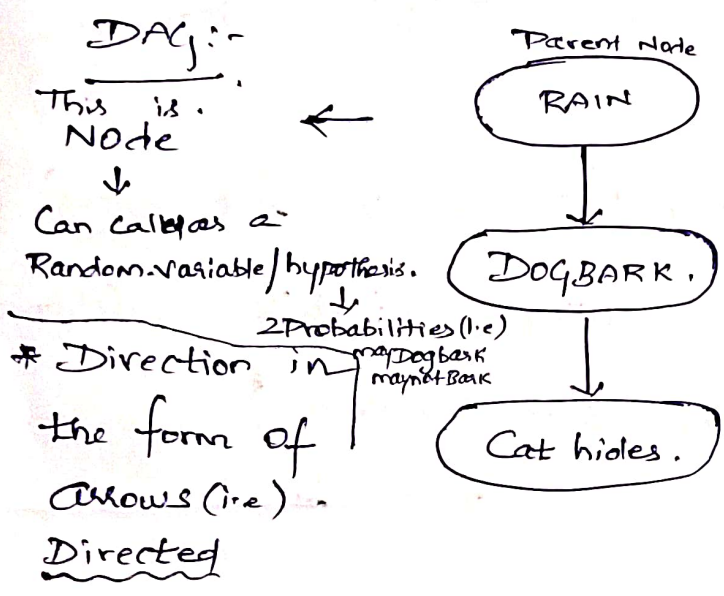 DAG:-
This is.
Node
Can call as a
Random variable/hypothesis.
2 Probabilities (i.e)
may Dog bark
may not Bark
* Direction in
the form of
arrows (i.e) -
Directed
Parent Node
RAIN
DOGBARK.
Cat hides.